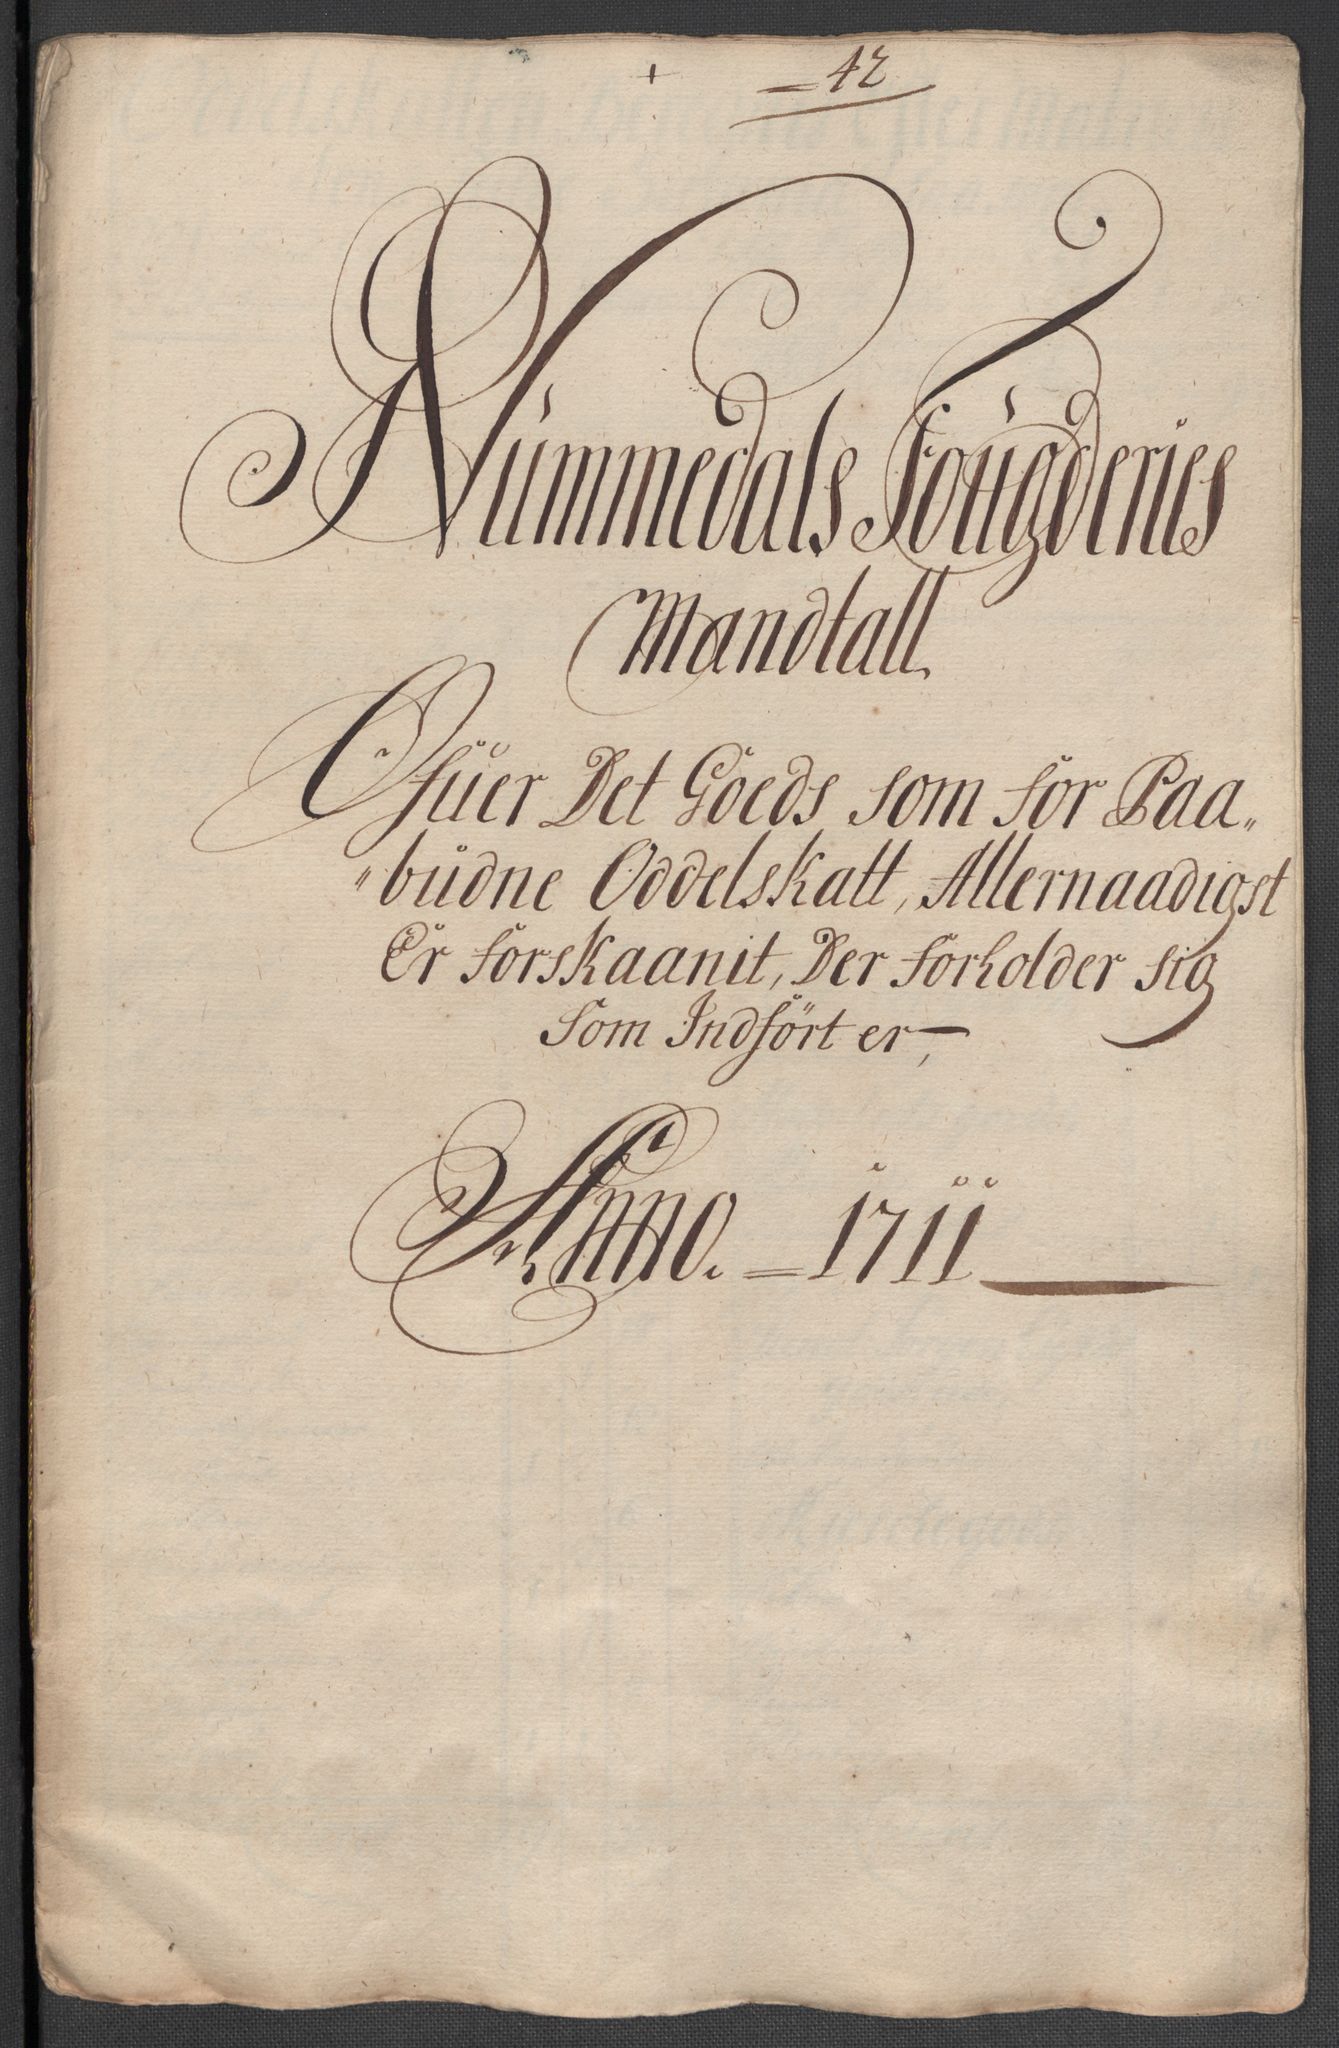 42
Nümmedals Foügderies
Mandtall
Ofüer Det Goeds som for Paa„
„büdne Oddelskatt, Allernaadigst
Er forskaanit, Der forholder sig
som Indført er,
Anno. = 1711